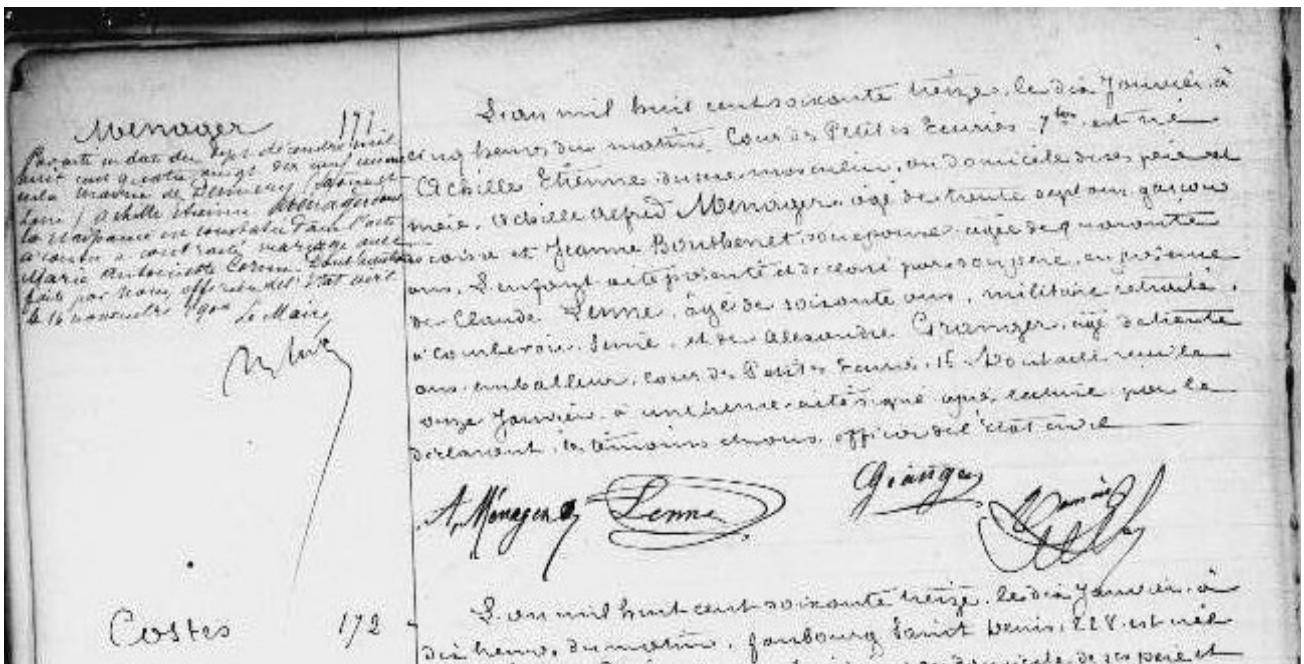 Menager 171
Par acte en date du sept décembre mil
huit cent quatre vingt dix neuf
en la mairie de
Achille Etienne Menager dont
la naissance est constatée dans l'acte
ci contre a contracté mariage avec
Marie Antoinette
fait par nous, officier de l'état civil
le 16 novembre 1900
Le Maire
L'an mil huit cent soixante treize, le dix Janvier, à
cinq heures du matin, Cour des Petites Ecuries, 7bis est né
Achille Etienne du sexe masculin, au domicile de ses père et
mère, Achille Alfred Menager, âgé de trente sept ans, garçon
de caisse et Jeanne Bouthenet, son épouse âgée de quarante
ans. L'enfant a été présenté et déclaré par son père, en présence
de Claude Lenne, âgé de soixante ans, militaire retraité,
à Courbevoie, Seine, et de Alexandre Granger, âgé de trente
ans, emballeur, cour des Petites Ecuries, 15. Dont acte reçu le
onze Janvier, à une heure, et a été signé après lecture par le
déclarant, les témoins et nous, officier de l'état civil
A. Ménager Lenne Granger
Costes 172
L'an mil huit cent soixante treize, le dix Janvier, à
dix heures du matin, faubourg Saint Denis, 228, est née
au domicile de ses père et